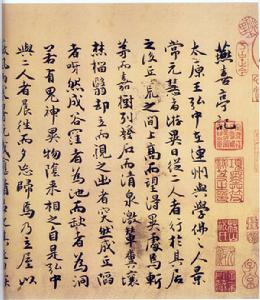 燕喜亭記
太原王弘中在連州與學佛之人景
常元慧者游異日從二人者行於其居
之後丘荒之間上高而望得異處焉斬
茅而嘉樹列發石而清泉激輦糞壤
燔椔翳却立而視之出者突然成丘陷
者呀然成谷窪者為池而缺者為洞
若有鬼神異物陰來相之自是弘中
與二人者晨往而夕忘歸焉乃立屋以